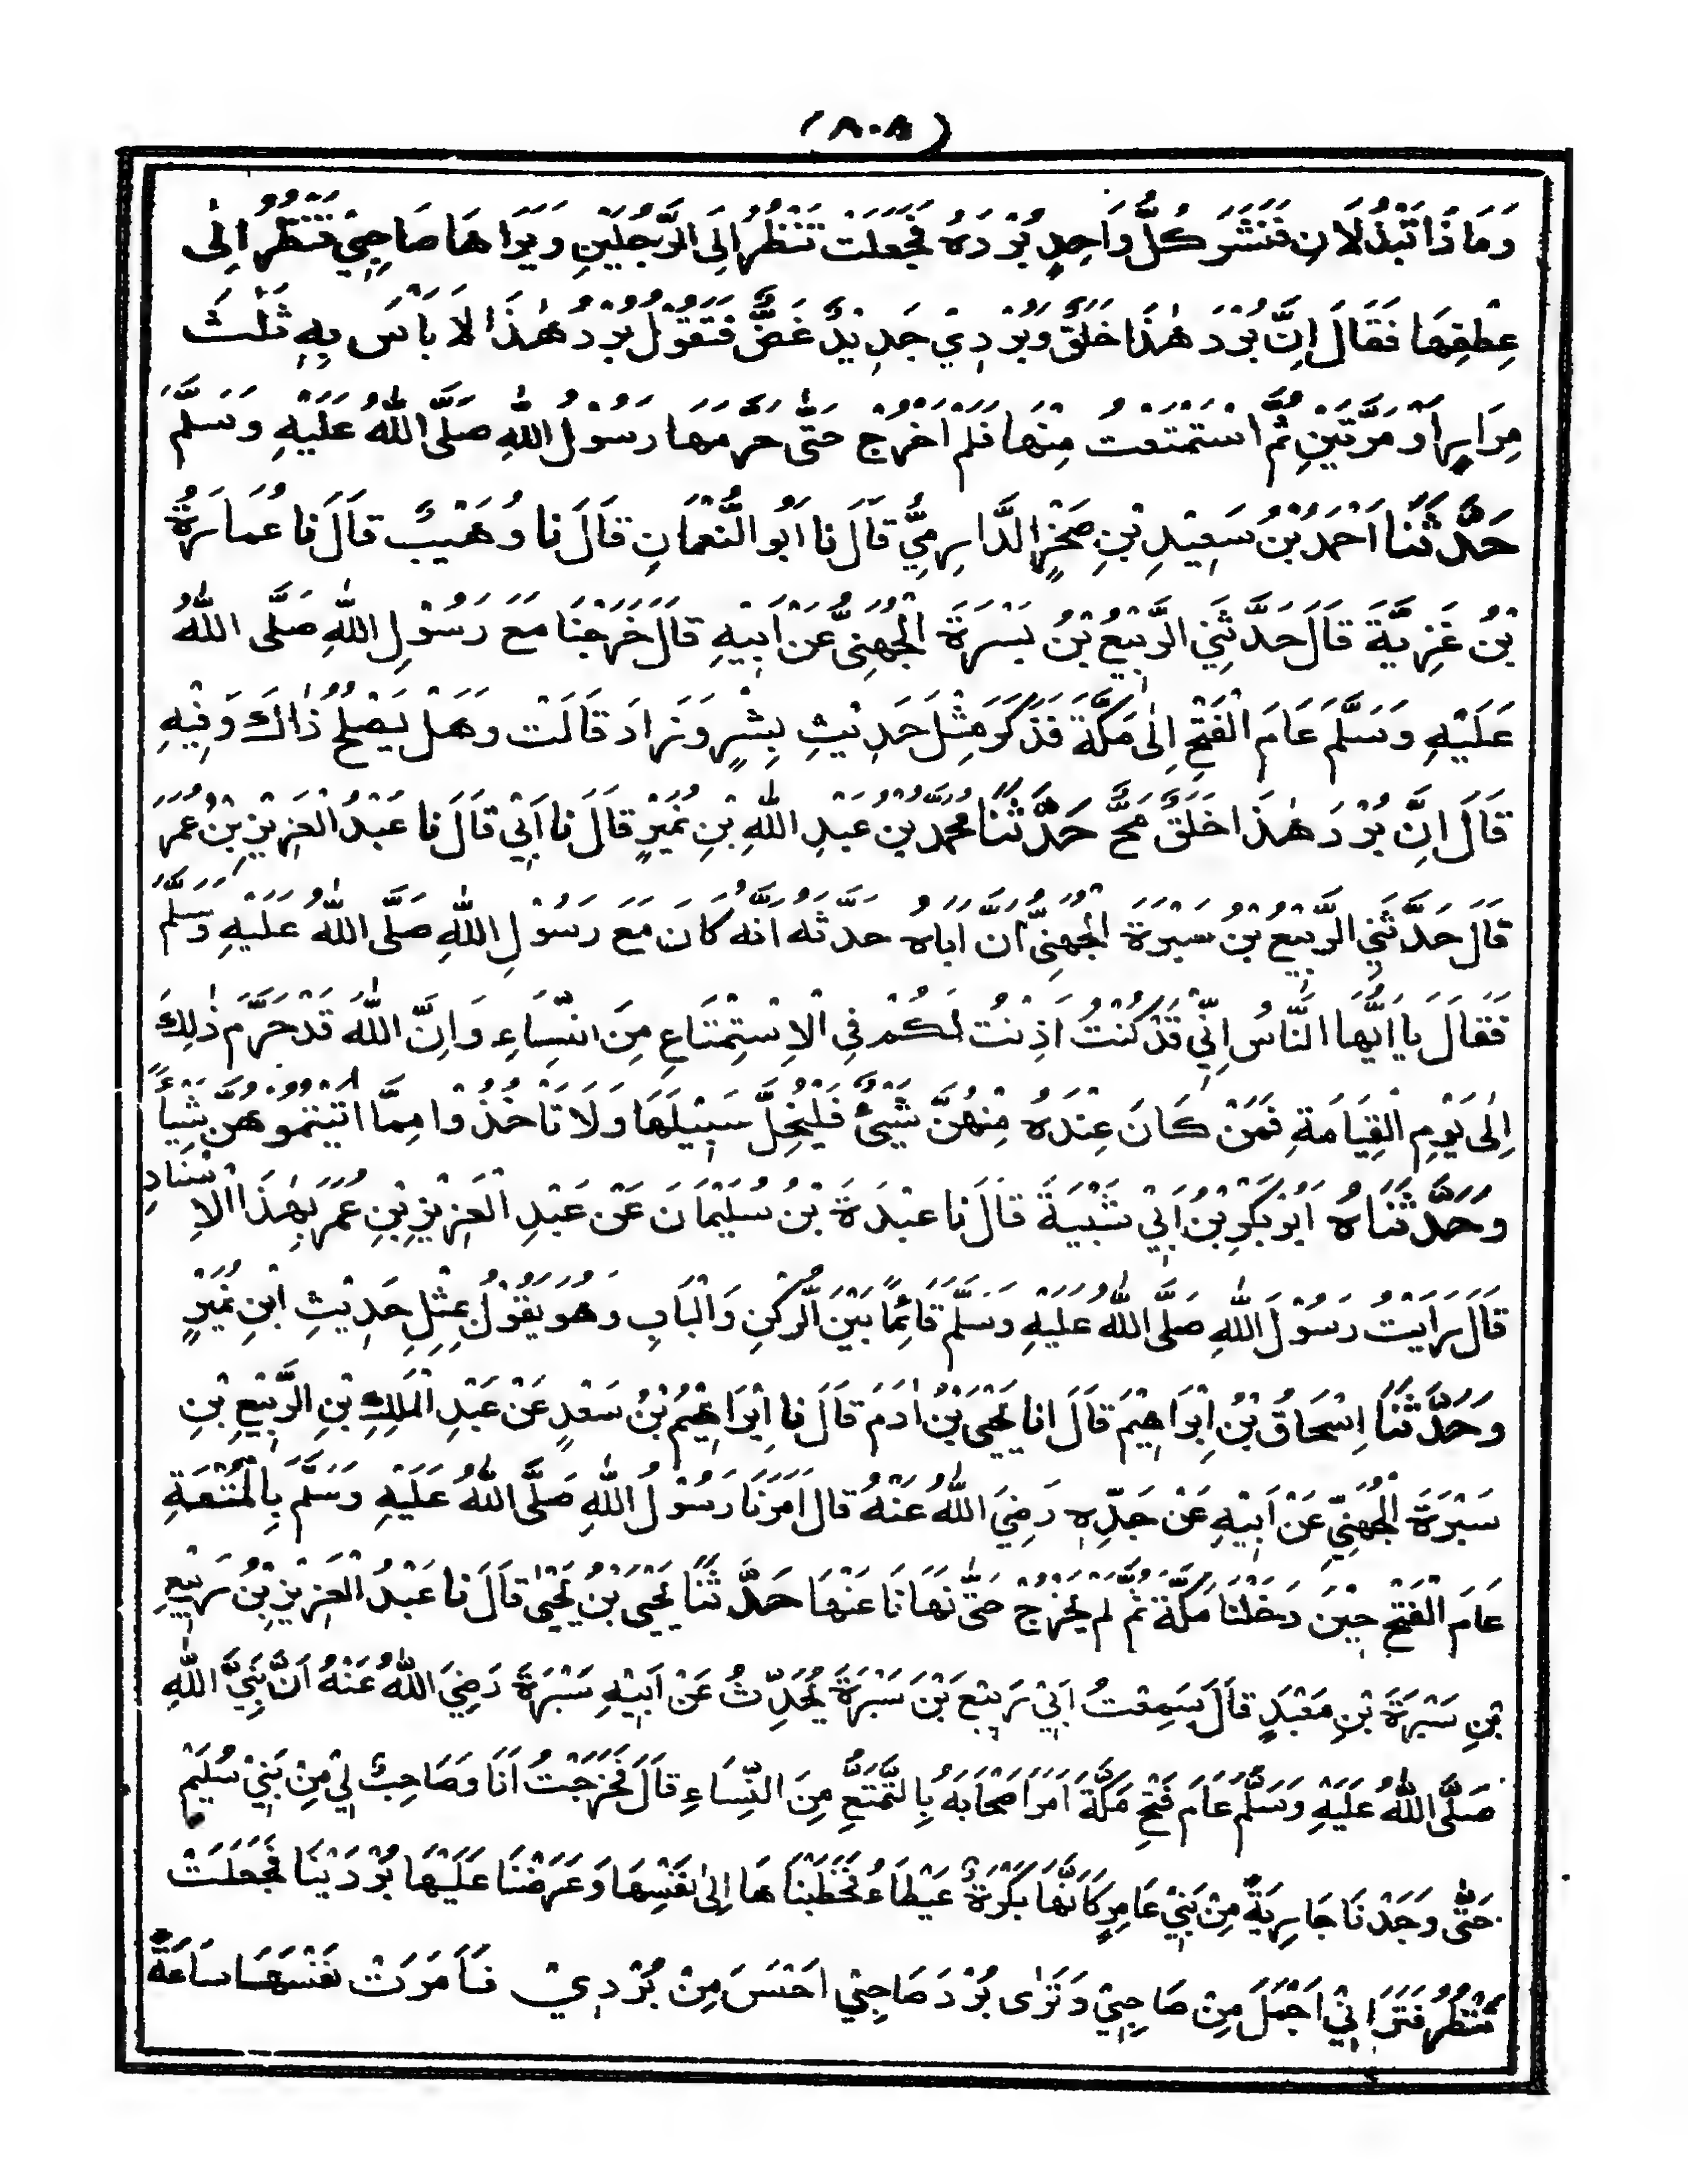 (٨٠٨)
وَمَا ذَا تَبْذُلَانِ فَنَشَرَ كُلُّ وَاحِدٍ بُرْدَهُ فَجَعَلَتْ تَنْظُرُ اِلَى الرَّجُلَيْنِ وَيَرَاهَا صَاحِبِيْ تَنْظُرُ اِلٰى
عِطْفِهَا فَقَالَ اِنَّ بُرْدَ هٰذَا خَلَقٌ وَبُرْدِيْ جَدِيْدٌ غَضٌّ فَتَقُوْلُ بُرْدُ هٰذَا لَا بَاْسَ بِهٖ ثَلٰثَ
مِرَارٍ اَوْ مَرَّتَيْنِ ثُمَّ اسْتَمْتَعْتُ مِنْهَا فَلَمْ اَخْرُجْ حَتّٰى حَرَّمَهَا رَسُوْلُ اللّٰهِ صَلَّى اللّٰهُ عَلَيْهِ وَسَلَّمَ
حَدَّثَنَا اَحْمَدُ بْنُ سَعِيْدِ بْنِ صَخْرٍ الدَّارِمِيُّ قَالَ نَا اَبُو النُّعْمَانِ قَالَ نَا وُهَيْبٌ قَالَ نَا عُمَارَةُ
بْنُ غَزِيَّةَ قَالَ حَدَّثَنِي الرَّبِيْعُ بْنُ سَبْرَةَ الْجُهَنِيُّ عَنْ اَبِيْهِ قَالَ خَرَجْنَا مَعَ رَسُوْلِ اللّٰهِ صَلَّى اللّٰهُ
عَلَيْهِ وَسَلَّمَ عَامَ الْفَتْحِ اِلٰى مَكَّةَ فَذَكَرَ مِثْلَ حَدِيْثِ بِشْرٍ وَزَادَ قَالَتْ وَهَلْ يَصْلُحُ ذٰاكَ وَفِيْهِ
قَالَ اِنَّ بُرْدَ هٰذَا خَلَقٌ مَحٌّ حَدَّثَنَا مُحَمَّدُ بْنُ عَبْدِ اللّٰهِ بْنِ نُمَيْرٍ قَالَ نَا اَبِيْ قَالَ نَا عَبْدُ الْعَزِيْزِ بْنُ عُمَرَ
قَالَ حَدَّثَنِي الرَّبِيْعُ بْنُ سَبْرَةَ الْجُهَنِيُّ اَنَّ اَبَاهُ حَدَّثَهُ اَنَّهُ كَانَ مَعَ رَسُوْلِ اللّٰهِ صَلَّى اللّٰهُ عَلَيْهِ وَسَلَّمَ
فَقَالَ يَا اَيُّهَا النَّاسُ اِنِّيْ قَدْ كُنْتُ اَذِنْتُ لَكُمْ فِي الْاِسْتِمْتَاعِ مِنَ النِّسَاءِ وَاِنَّ اللّٰهَ قَدْ حَرَّمَ ذٰلِكَ
اِلٰى يَوْمِ الْقِيَامَةِ فَمَنْ كَانَ عِنْدَهُ مِنْهُنَّ شَيْئٌ فَلْيُخَلِّ سَبِيْلَهَا وَلَا تَاْخُذُوْا مِمَّا اٰتَيْتُمُوْهُنَّ شَيْئًا
وَحَدَّثَنَاهُ اَبُوْ بَكْرِ بْنُ اَبِيْ شَيْبَةَ قَالَ نَا عَبْدَةُ بْنُ سُلَيْمَانَ عَنْ عَبْدِ الْعَزِيْزِ بْنِ عُمَرَ بِهٰذَا الْاِسْنَادِ
قَالَ رَاَيْتُ رَسُوْلَ اللّٰهِ صَلَّى اللّٰهُ عَلَيْهِ وَسَلَّمَ قَائِمًا بَيْنَ الرُّكْنِ وَالْبَابِ وَهُوَ يَقُوْلُ بِمِثْلِ حَدِيْثِ ابْنِ نُمَيْرٍ
وَحَدَّثَنَا اِسْحَاقُ بْنُ اِبْرَاهِيْمَ قَالَ اَنَا يَحْيَى بْنُ اٰدَمَ قَالَ نَا اِبْرَاهِيْمُ بْنُ سَعْدٍ عَنْ عَبْدِ الْمَلِكِ بْنِ الرَّبِيْعِ بْنِ
سَبْرَةَ الْجُهَنِيِّ عَنْ اَبِيْهِ عَنْ جَدِّهٖ رَضِيَ اللّٰهُ عَنْهُ قَالَ اَمَرَنَا رَسُوْلُ اللّٰهِ صَلَّى اللّٰهُ عَلَيْهِ وَسَلَّمَ بِالْمُتْعَةِ
عَامَ الْفَتْحِ حِيْنَ دَخَلْنَا مَكَّةَ ثُمَّ لَمْ نَخْرُجْ حَتّٰى نَهَانَا عَنْهَا حَدَّثَنَا يَحْيَى بْنُ يَحْيٰى قَالَ نَا عَبْدُ الْعَزِيْزِ بْنُ رَبِيْعِ
بْنِ سَبْرَةَ بْنِ مَعْبَدٍ قَالَ سَمِعْتُ اَبِيْ رَبِيْعَ بْنَ سَبْرَةَ يُحَدِّثُ عَنْ اَبِيْهِ سَبْرَةَ رَضِيَ اللّٰهُ عَنْهُ اَنَّ نَبِيَّ اللّٰهِ
صَلَّى اللّٰهُ عَلَيْهِ وَسَلَّمَ عَامَ فَتْحِ مَكَّةَ اَمَرَ اَصْحَابَهُ بِالتَّمَتُّعِ مِنَ النِّسَاءِ قَالَ فَخَرَجْتُ اَنَا وَصَاحِبٌ لِيْ مِنْ بَنِيْ سُلَيْمٍ
حَتّٰى وَجَدْنَا جَارِيَةً مِنْ بَنِيْ عَامِرٍ كَاَنَّهَا بَكْرَةٌ عَيْطَاءُ فَخَطَبْنَاهَا اِلٰى نَفْسِهَا وَعَرَضْنَا عَلَيْهَا بُرْدَيْنَا فَجَعَلَتْ
تَنْظُرُ فَتَرَانِيْ اَجْمَلَ مِنْ صَاحِبِيْ وَتَرٰى بُرْدَ صَاحِبِيْ اَحْسَنَ مِنْ بُرْدِيْ فَاٰمَرَتْ نَفْسَهَا سَاعَةً